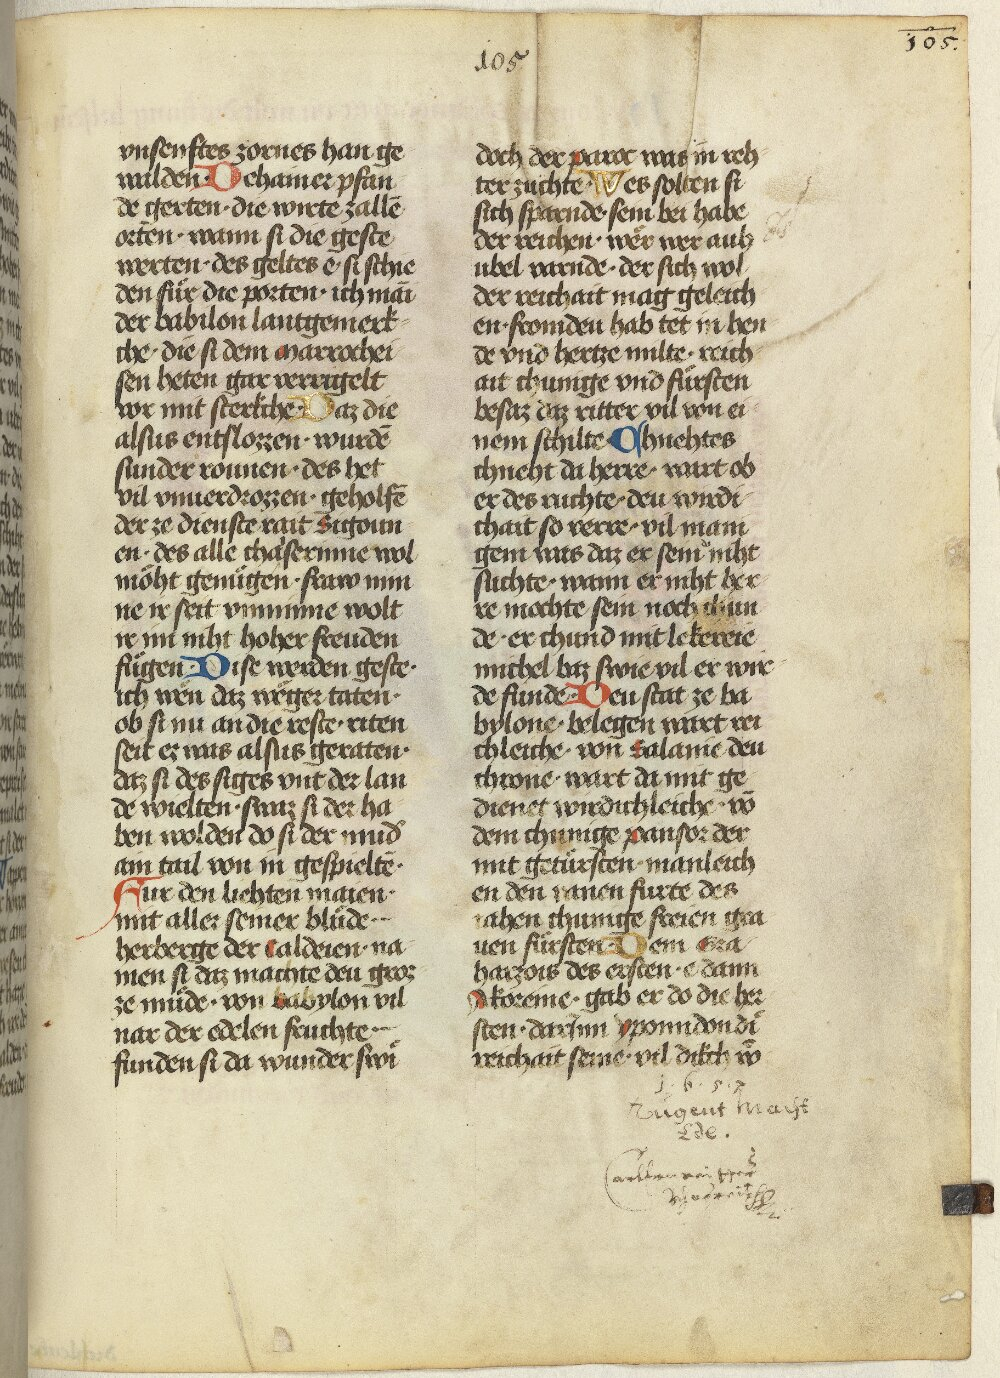 105.
105
vnsenftes zornes han ge
walden· Dehainer pfan
de gerten· die wirte zallē
orten· wann si die geste
werten· des geltes e· si schie
den für die porten· ich main
der babilon lantgemerk
che· die si dem marrochei
sen heten gar verrigelt
vor mit sterkche· Daz die
alsus entslozzen· wurdē
sunder rounen· des het
vil vnuerdrozzen· geholfē
der ze dienste rait Sigoun
en· des alle chaserinne wol
möht genügen· fraw min
ne ir seit vnminne wolt
ir im niht hoher freuden
fügen· Dise werden geste·
ich wen daz weger taten·
ob si nu an die reste· riten
seit ez was alsus geraten·
daz si des siges vnt der lan
de wielten· swaz si der ha
ben wolden do si der mud
ain tail von in gespieltē·
Fur den liehten maien·
mit aller seiner blüde··
herberge der Caldeien· na
men si daz machte deu groz
ze müde· von babylon vil
nar der edelen fruchte··
funden si da wunder swi
doch der paroc was in reh
ter zuchte· Wes solten si
sich sparnde· sein bei habe
der reichen· wer wer auh
ubel varnde· der sich wol
der reichait mag geleich
en· fromden hab tet in hen
de vnd hertze milte· reich
ait chunige vnd fürsten
besaz daz ritter vil von ei
nem schilte· Chnehtes
chneht da herre· wart ob
er des ruchte· deu wirdi
chait so verre· vil mani
gem was daz er sein niht
suchte· wann er niht her
re mochte sein noch chun
de· er chund mit lekereie
michel baz swie vil er wir
de funde· Deu stat ze ba
bylone· belegen wart rei
chleiche· von Salanie deu
chrone· wart da mit ge
dienet wirdichleiche· vō
dem chunige pansor der
mit getürsten· manleich
en den vanen furte des
nahen chunige freien gra
uen fürsten· Dem Gra
harzois des ersten· e dann
Akoreine· gab er do die her
sten· darinn yponidon di
reichait seine· vil dikch wo
1 6 5 7
Tugent Macht
Ede.